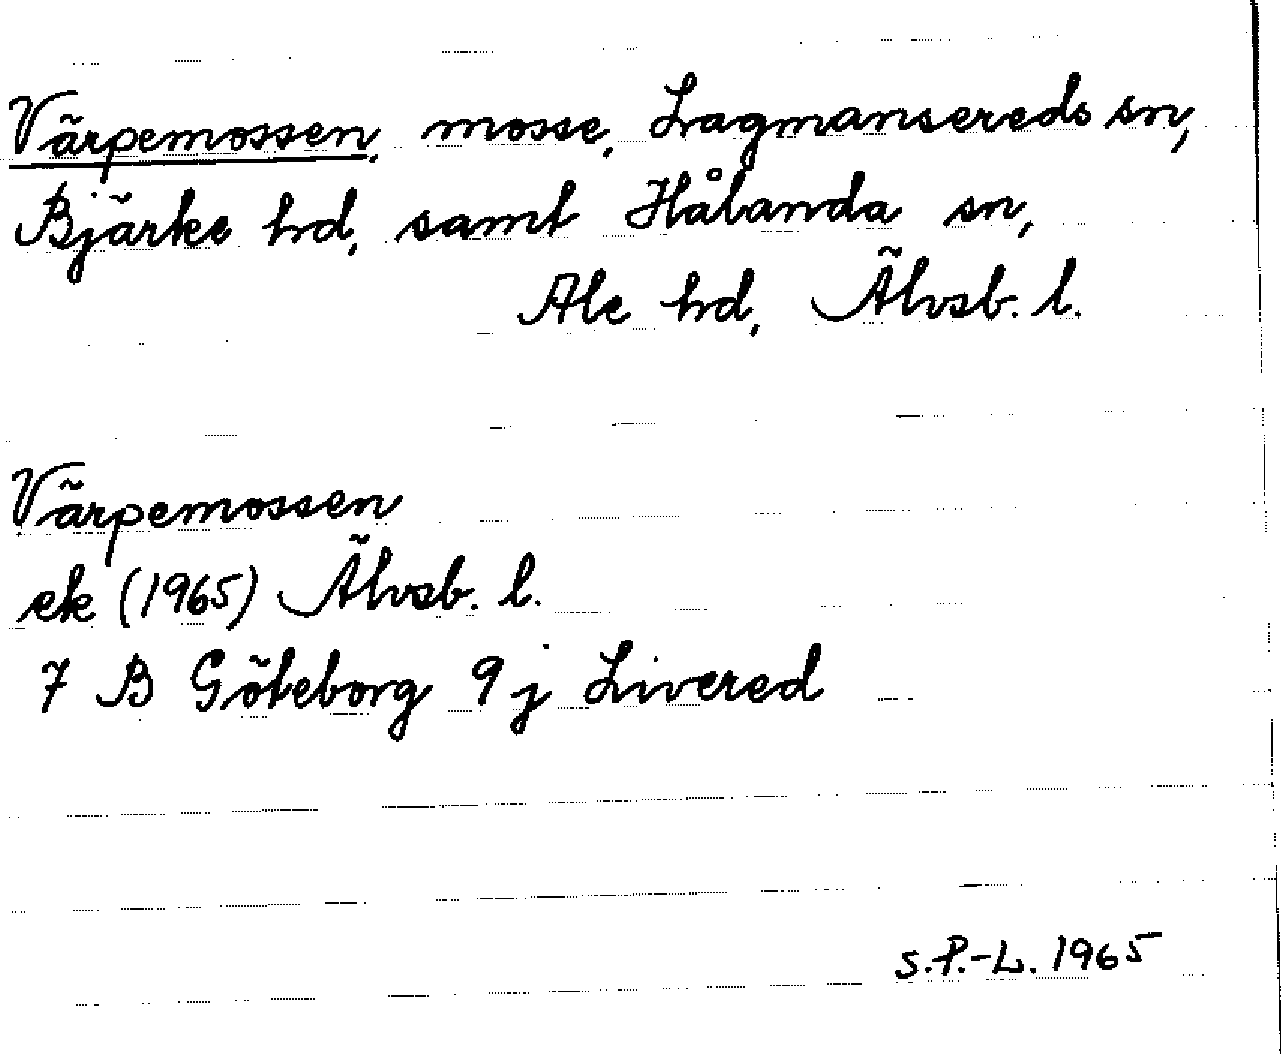 Värpemossen, mosse, Lagmansereds sn,
Bjärke hd, samt Hålanda sn,
Ale hd, Älvsb. l.
Värpemossen
ek (1965) Älvsb. l.
7 B Göteborg 9 j Livered
S.P.-L. 1965